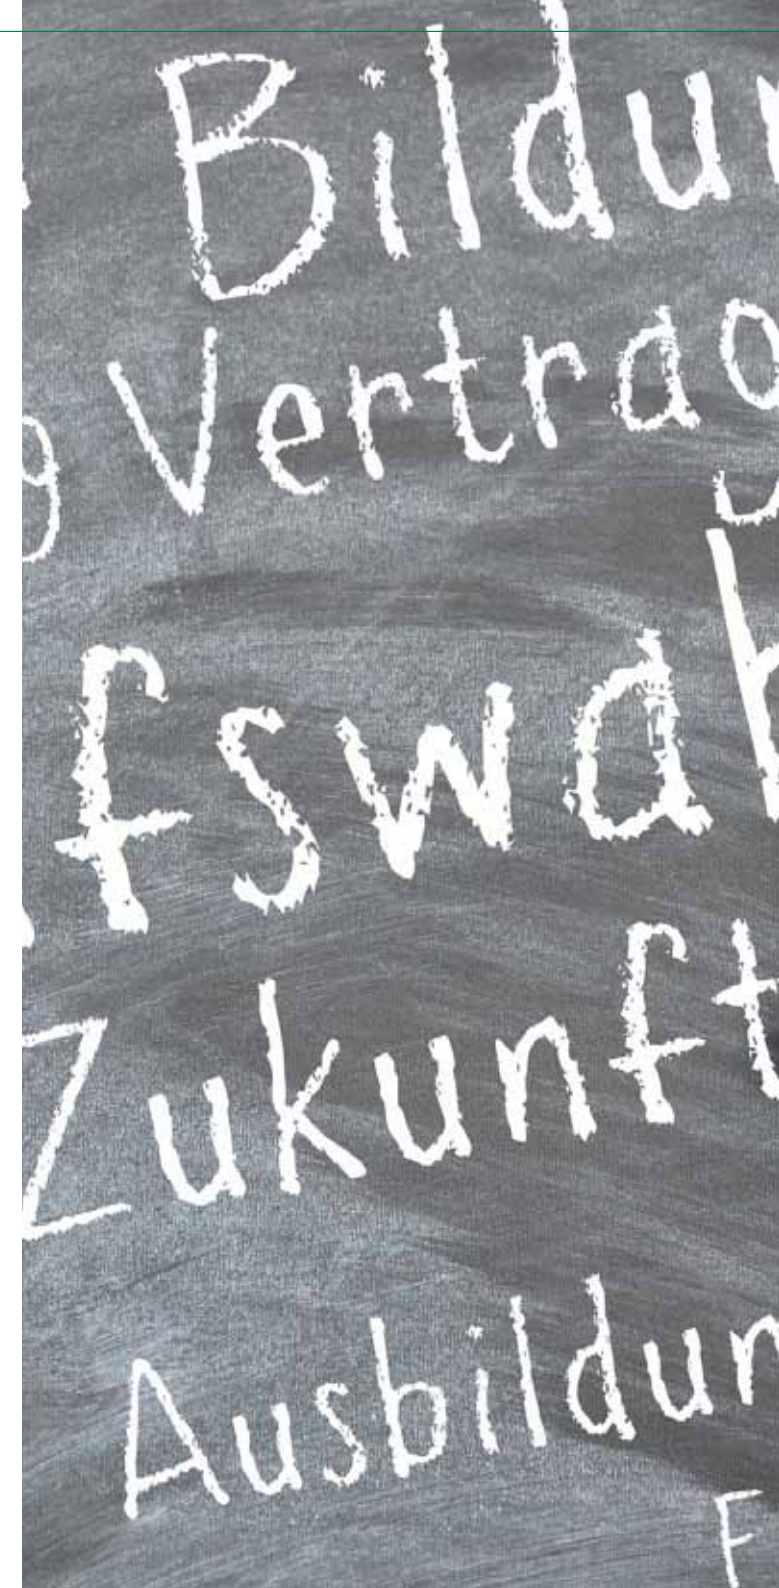 Bildun
g Vertrag
fswah
Zukunft
Ausbildun
F